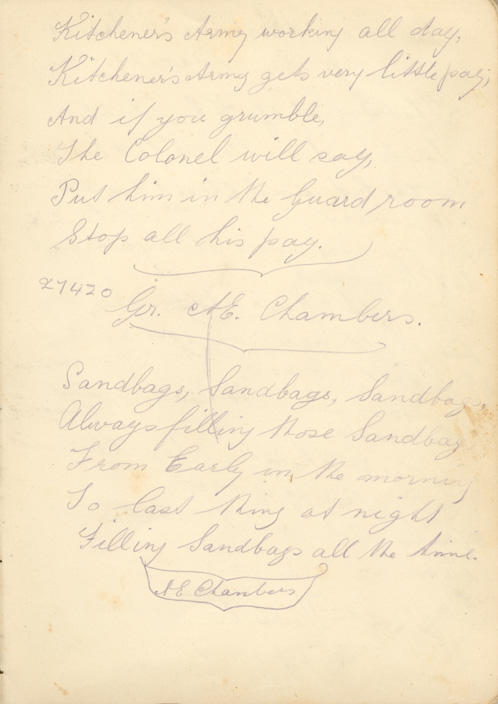 Kitchener's Army working all day,
Kitchener's Army gets very little pay,
And if you grumble,
The Colonel will say,
Put him in the Guard room
Stop all his pay.
27420
Gr. A.E. Chambers.
Sandbags, Sandbags, Sandbags
Always filling those Sandbag
From Early in the morning
To last thing at night
Filling Sandbags all the time.
A E Chambers